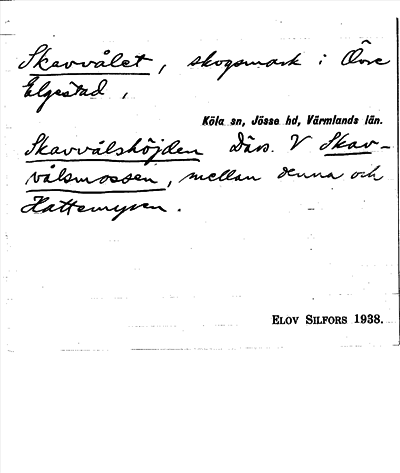 Skavvålet, skogsmark i Övre
Elgestad,
Köla sn, Jösse hd, Värmlands län.
Skavvålshöjden Därs. V Skav-
vålsmossen, mellan denna och
Hattemyren.
ELOV SILFORS 1938.